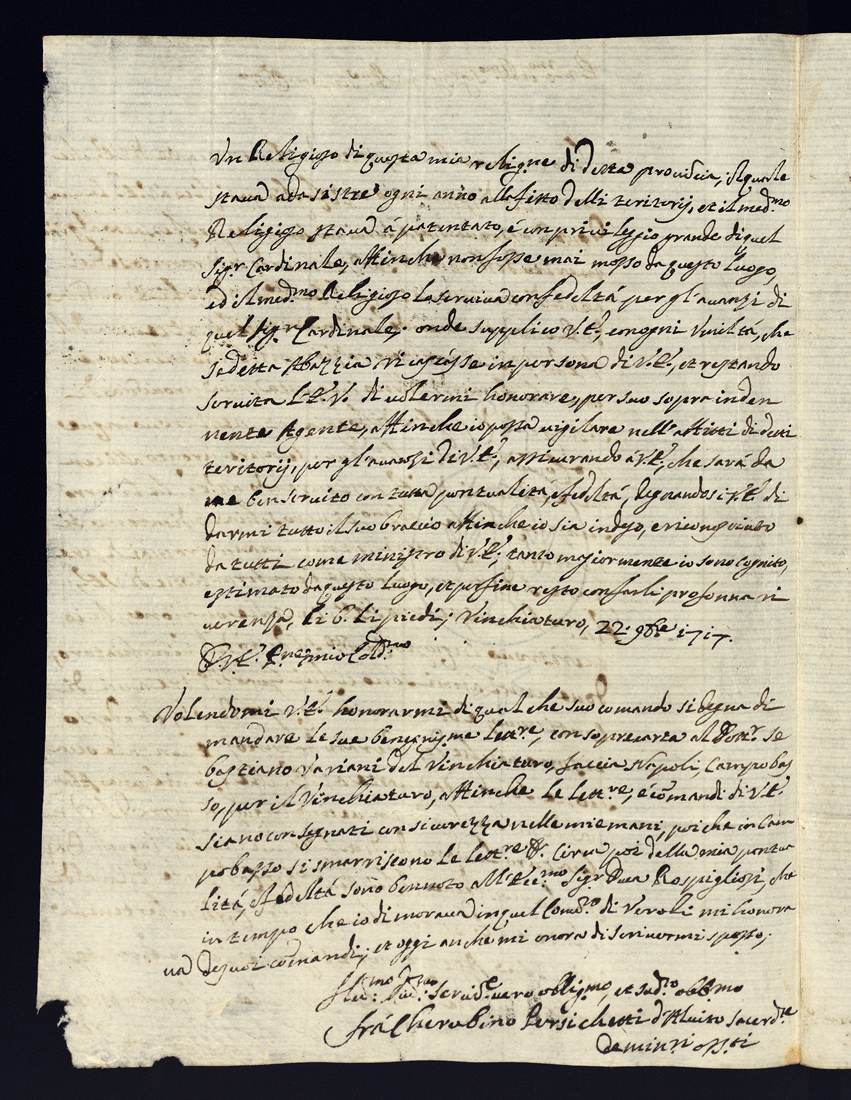 Un Religioso di questa mia relig.ne di detta provincia, il quale
stava ad asistre ogni anno alla fitto delli teritorij, et il med.mo
Religioso stava á patentato, é con privileggio grande di quel
Sig.r Cardinale, affinche non fosse mai mosso da questo luogo,
ed il med.mo Religioso la serviva con fedeltá per gl'avanzi di
quel Sig.r Cardinale; onde supplico V.E., con ogni Vmiltá, che
se detta Abazzia ricascasse in persona di V.E., et restando
servita l'E.V. di volermi honorare, per suo sopra inden
nente Agente, affinche io possa vigilare nell'affitti di detti
teritorij, per gl'avanzi di V.E., assicurando á V.E., che sará da
me ben servito con tutta pontualitá, e fedeltá, degnandosi V.E. di
darmi tutto il suo braccio affinche io sia inteso, e riconosciuto
da tutti come ministro di V.E., tanto magiormente io sono cognito,
e stimato da questo luogo, et per fine resto con farli profonna ri
verenza, li b. li piedi; Vinchiaturo, 22. 9bre 1717.
D. V.E. P.ne mio Col.mo
Volendomi V.E. honorarmi di qualche suo comando si degna di
mandare le sue benignis.me lett.re, con sopracarta al Dott.r Se
bastiano Variani del Vinchiaturo, faccia Napoli, Campobas
so, per il Vinchiaturo, affinche le lett.re, é comandi di V.E.
siano consegnati con sicurezza nelle mie mani, poiche in Cam
pobasso si smarriscono le lett.re &. Circa poi della mia pontua
litá, e fedeltá sono ben noto all'Ecc.mo Sig.r Duca Rospigliosi, che
in tempo che io dimorava in quel Conv.to di Veroli mi honora
va de suoi comandi, et oggi anche mi onora di scrivermi spesso;
Hu.mo Div.mo servid.e vero oblig.mo, et sud.to obb.mo
frá Cherobino Persichetti d'Alvito Sacerd.te
de min.ri oss.ti